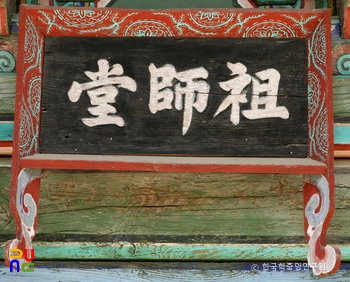 祖師堂
© 한국학중앙연구원